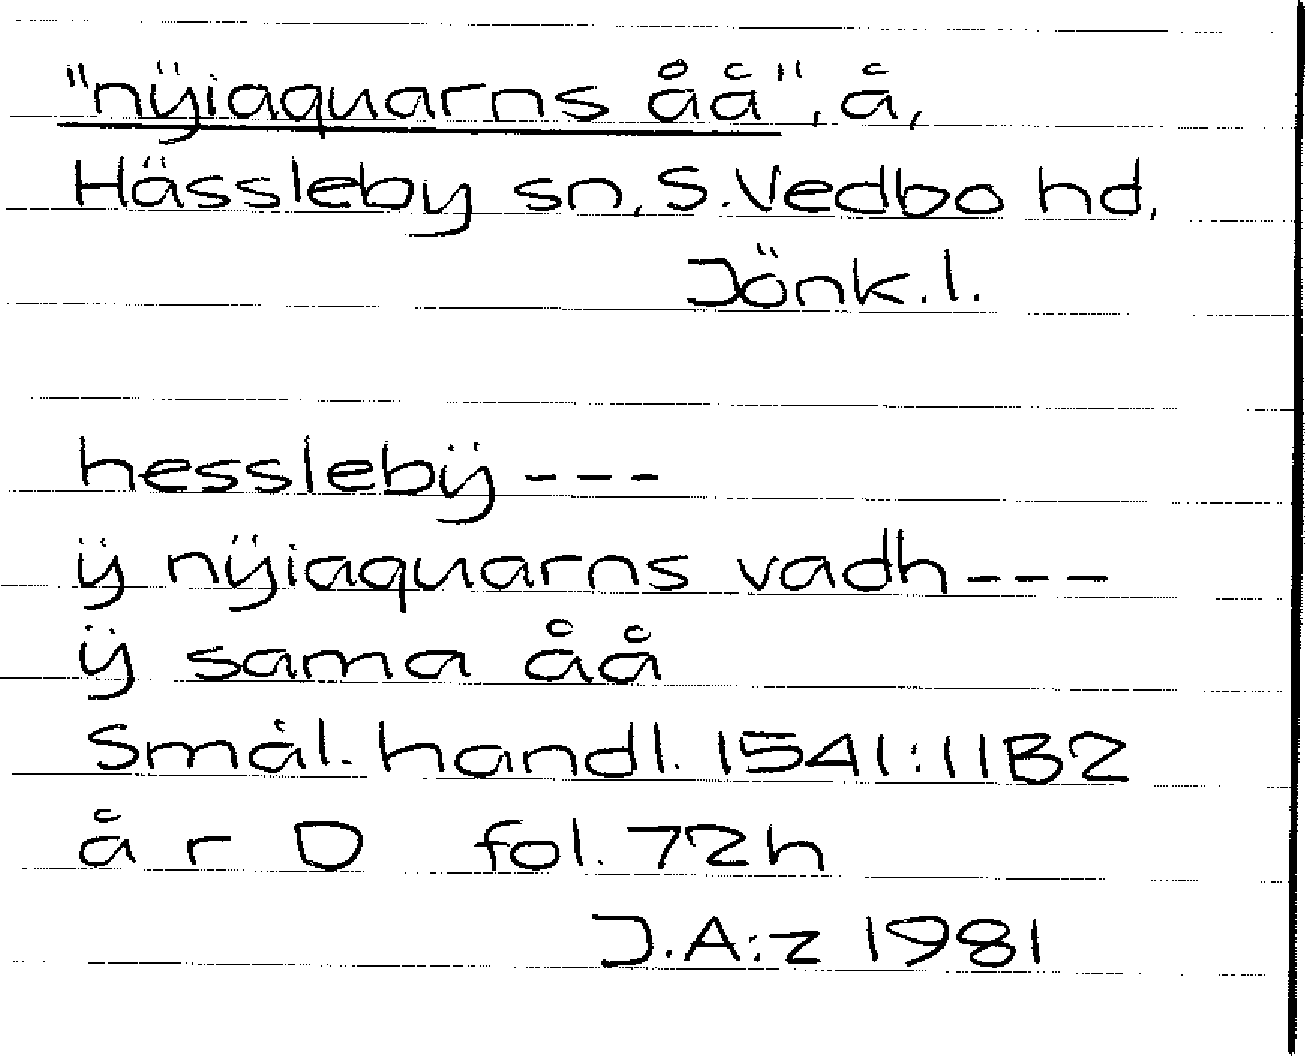 "nÿiaquarns åå", å,
Hässleby sn, S. Vedbo hd,
Jönk. l.
hesslebÿ - - -
ÿ nÿiaquarns vadh - - -
ÿ sama åå
Smål. handl. 1541:11B2
å r D fol. 72h
J.A:z 1981